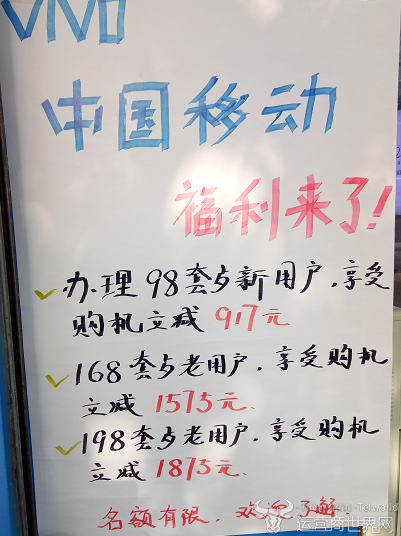 VIVO
中国移动
福利来了!
办理98套歺新用户,享受
购机立减917元
168套歺老用户,享受购机
立减1575元.
198套歺老用户,享受购机
立减1875元.
名额有限,欢迎了解
运营商世界网